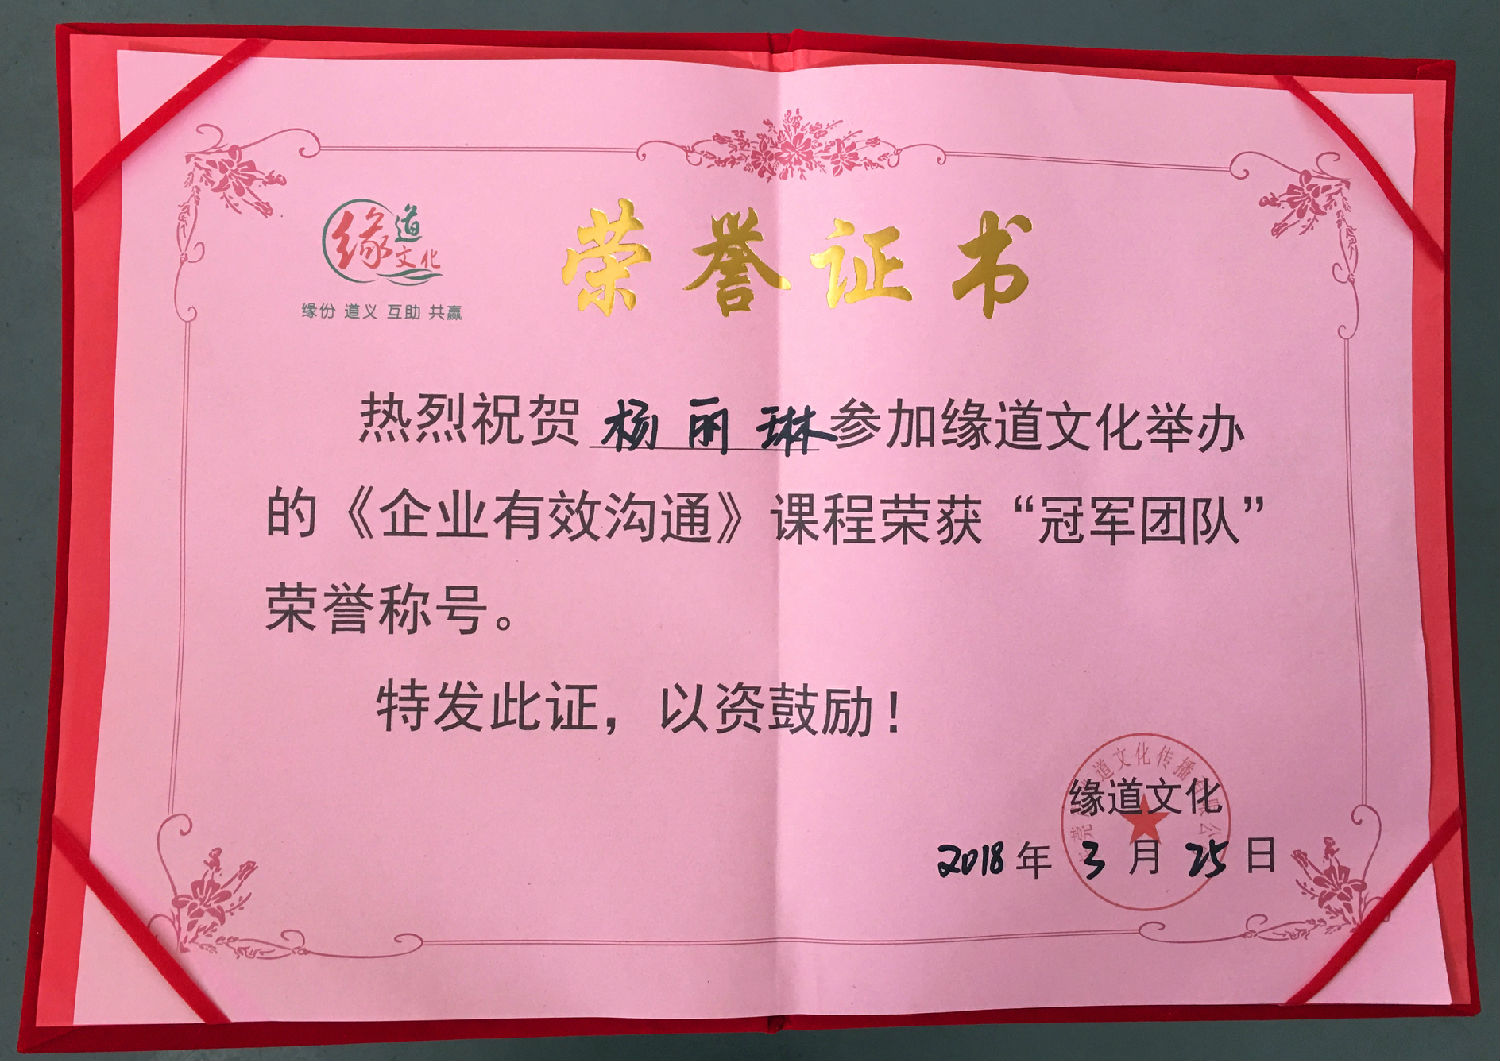 缘道文化
缘份 道义 互助 共赢
荣誉证书
热烈祝贺 杨丽琳 参加缘道文化举办
的《企业有效沟通》课程荣获“冠军团队”
荣誉称号。
特发此证，以资鼓励！
道文化传播
缘道文化
2018年3月25日